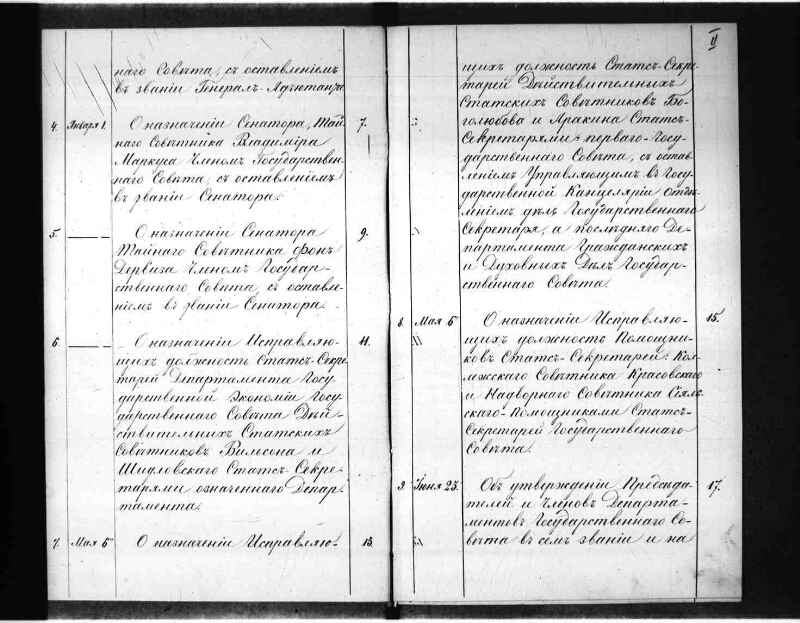 наго Совѣта, съ оставленіемъ
въ званіи Генералъ-Адъютанта.
4. Января 1. О назначеніи Сенатора, Тай- 7.
наго Совѣтника Владиміра
Маркуса Членомъ Государствен-
наго Совѣта, съ оставленіемъ
въ званіи Сенатора.
5. — О назначеніи Сенатора 9.
Тайнаго Совѣтника фонъ
Дервиза Членомъ Государ-
ственнаго Совѣта, съ оставле-
ніемъ въ званіи Сенатора.
6. — О назначеніи Исправляю- 11.
щихъ должность Статсъ-Секре-
тарей Департамента Госу-
дарственной Экономіи Госу-
дарственнаго Совѣта Дѣй-
ствительныхъ Статскихъ
Совѣтниковъ Вильсона и
Шидловскаго Статсъ-Секре-
тарями означеннаго Депар-
тамента.
7. Мая 5 О назначеніи Исправляю- 13.
II
щихъ должность Статсъ-Секре-
тарей Дѣйствительныхъ
Статскихъ Совѣтниковъ Бо-
голюбова и Аракина Статсъ-
Секретарями: перваго-Госу-
дарственнаго Совѣта, съ остав-
леніемъ Управляющимъ въ Госу-
дарственной Канцеляріи Отдѣ-
леніемъ дѣлъ Государственнаго
Секретаря, а послѣдняго Де-
партамента Гражданскихъ
и Духовныхъ Дѣлъ Государ-
ственнаго Совѣта.
8. Мая 5 О назначеніи Исправляю- 15.
щихъ должность Помощни-
ковъ Статсъ-Секретарей: Кол-
лежскаго Совѣтника Красовскаго
и Надворнаго Совѣтника Сѣяль-
скаго-Помощниками Статсъ-
Секретарей Государственнаго
Совѣта.
9. Іюня 23. Объ утвержденіи Предсѣда- 17.
телей и Членовъ Департа-
ментовъ Государственнаго Со-
вѣта въ семъ званіи и на